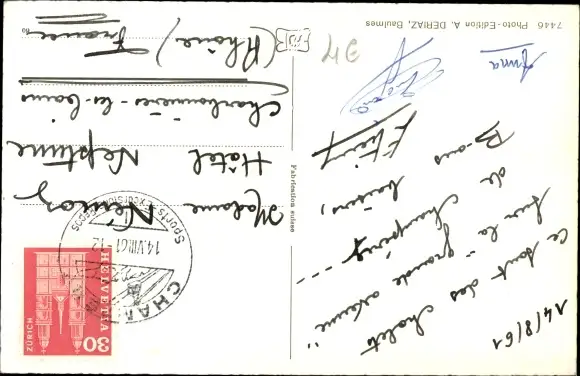 7446 Photo-Edition A. DERIAZ, Baulmes
Fabrication suisse
14/8/61
Ce sont des chalets
sur la "grande avenue"
de Champéry ---
Bons baisers,
Anna
Madame
Hôtel Neptune
Charbonnières-les-bains
(Rhône) France
HELVETIA
ZÜRICH
30
14.VIII.61-12
CHAM
Sports-Excursions-Repos